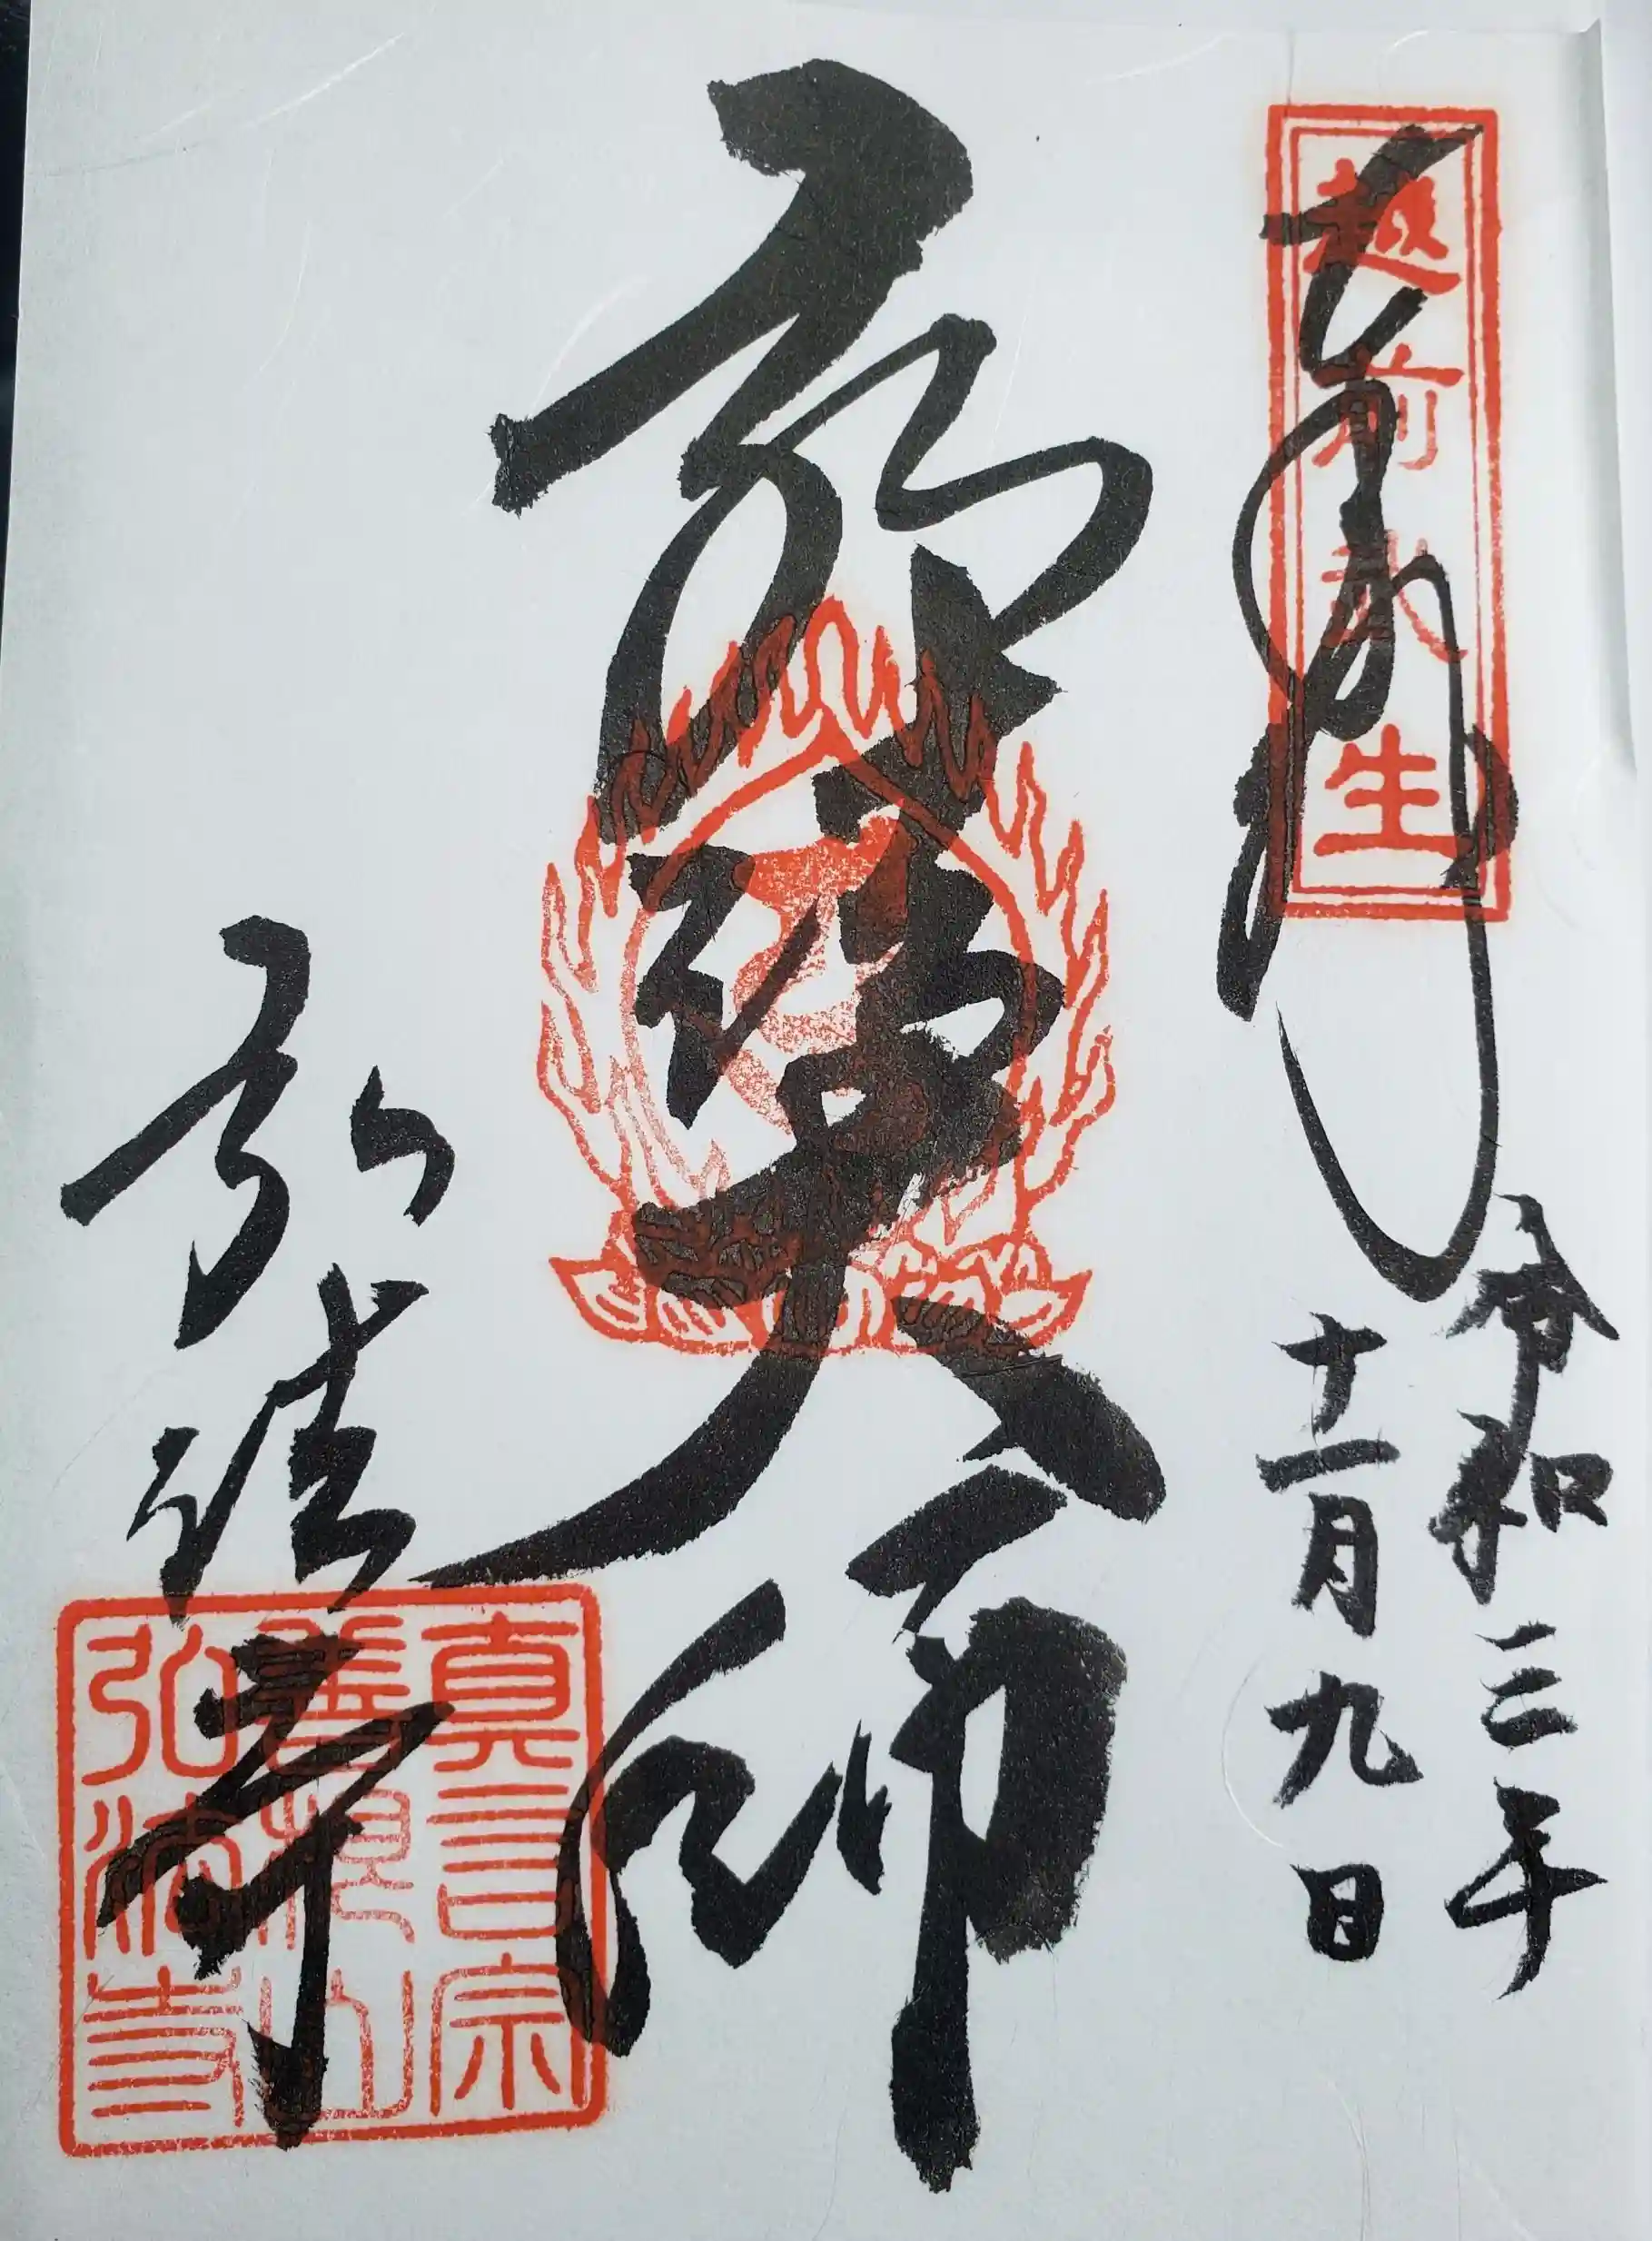 越前武生
奉拝
令和三年
十一月九日
弘法大師
弘法寺
真言宗
善根山
弘法寺